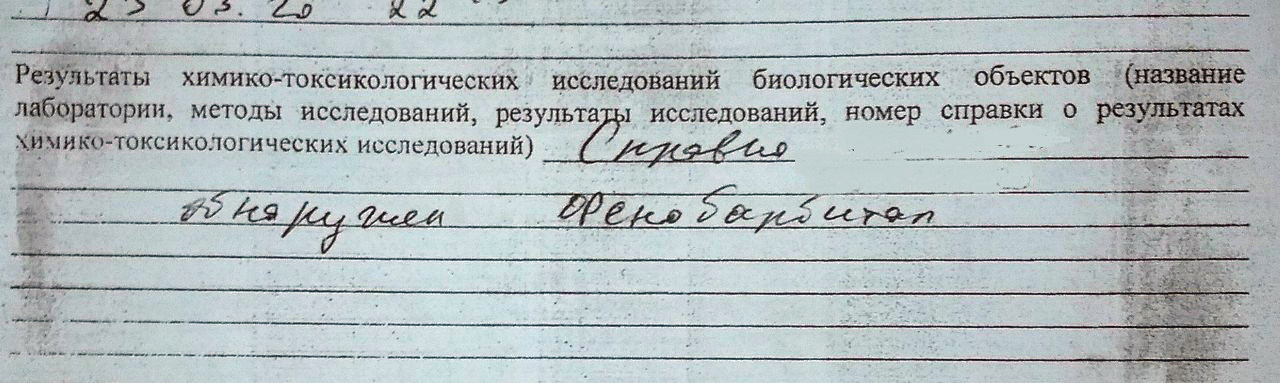 23 03. 20 22
Результаты химико-токсикологических исследований биологических объектов (название
лаборатории, методы исследований, результаты исследований, номер справки о результатах
химико-токсикологических исследований) Справка
обнаружен Фенобарбитал